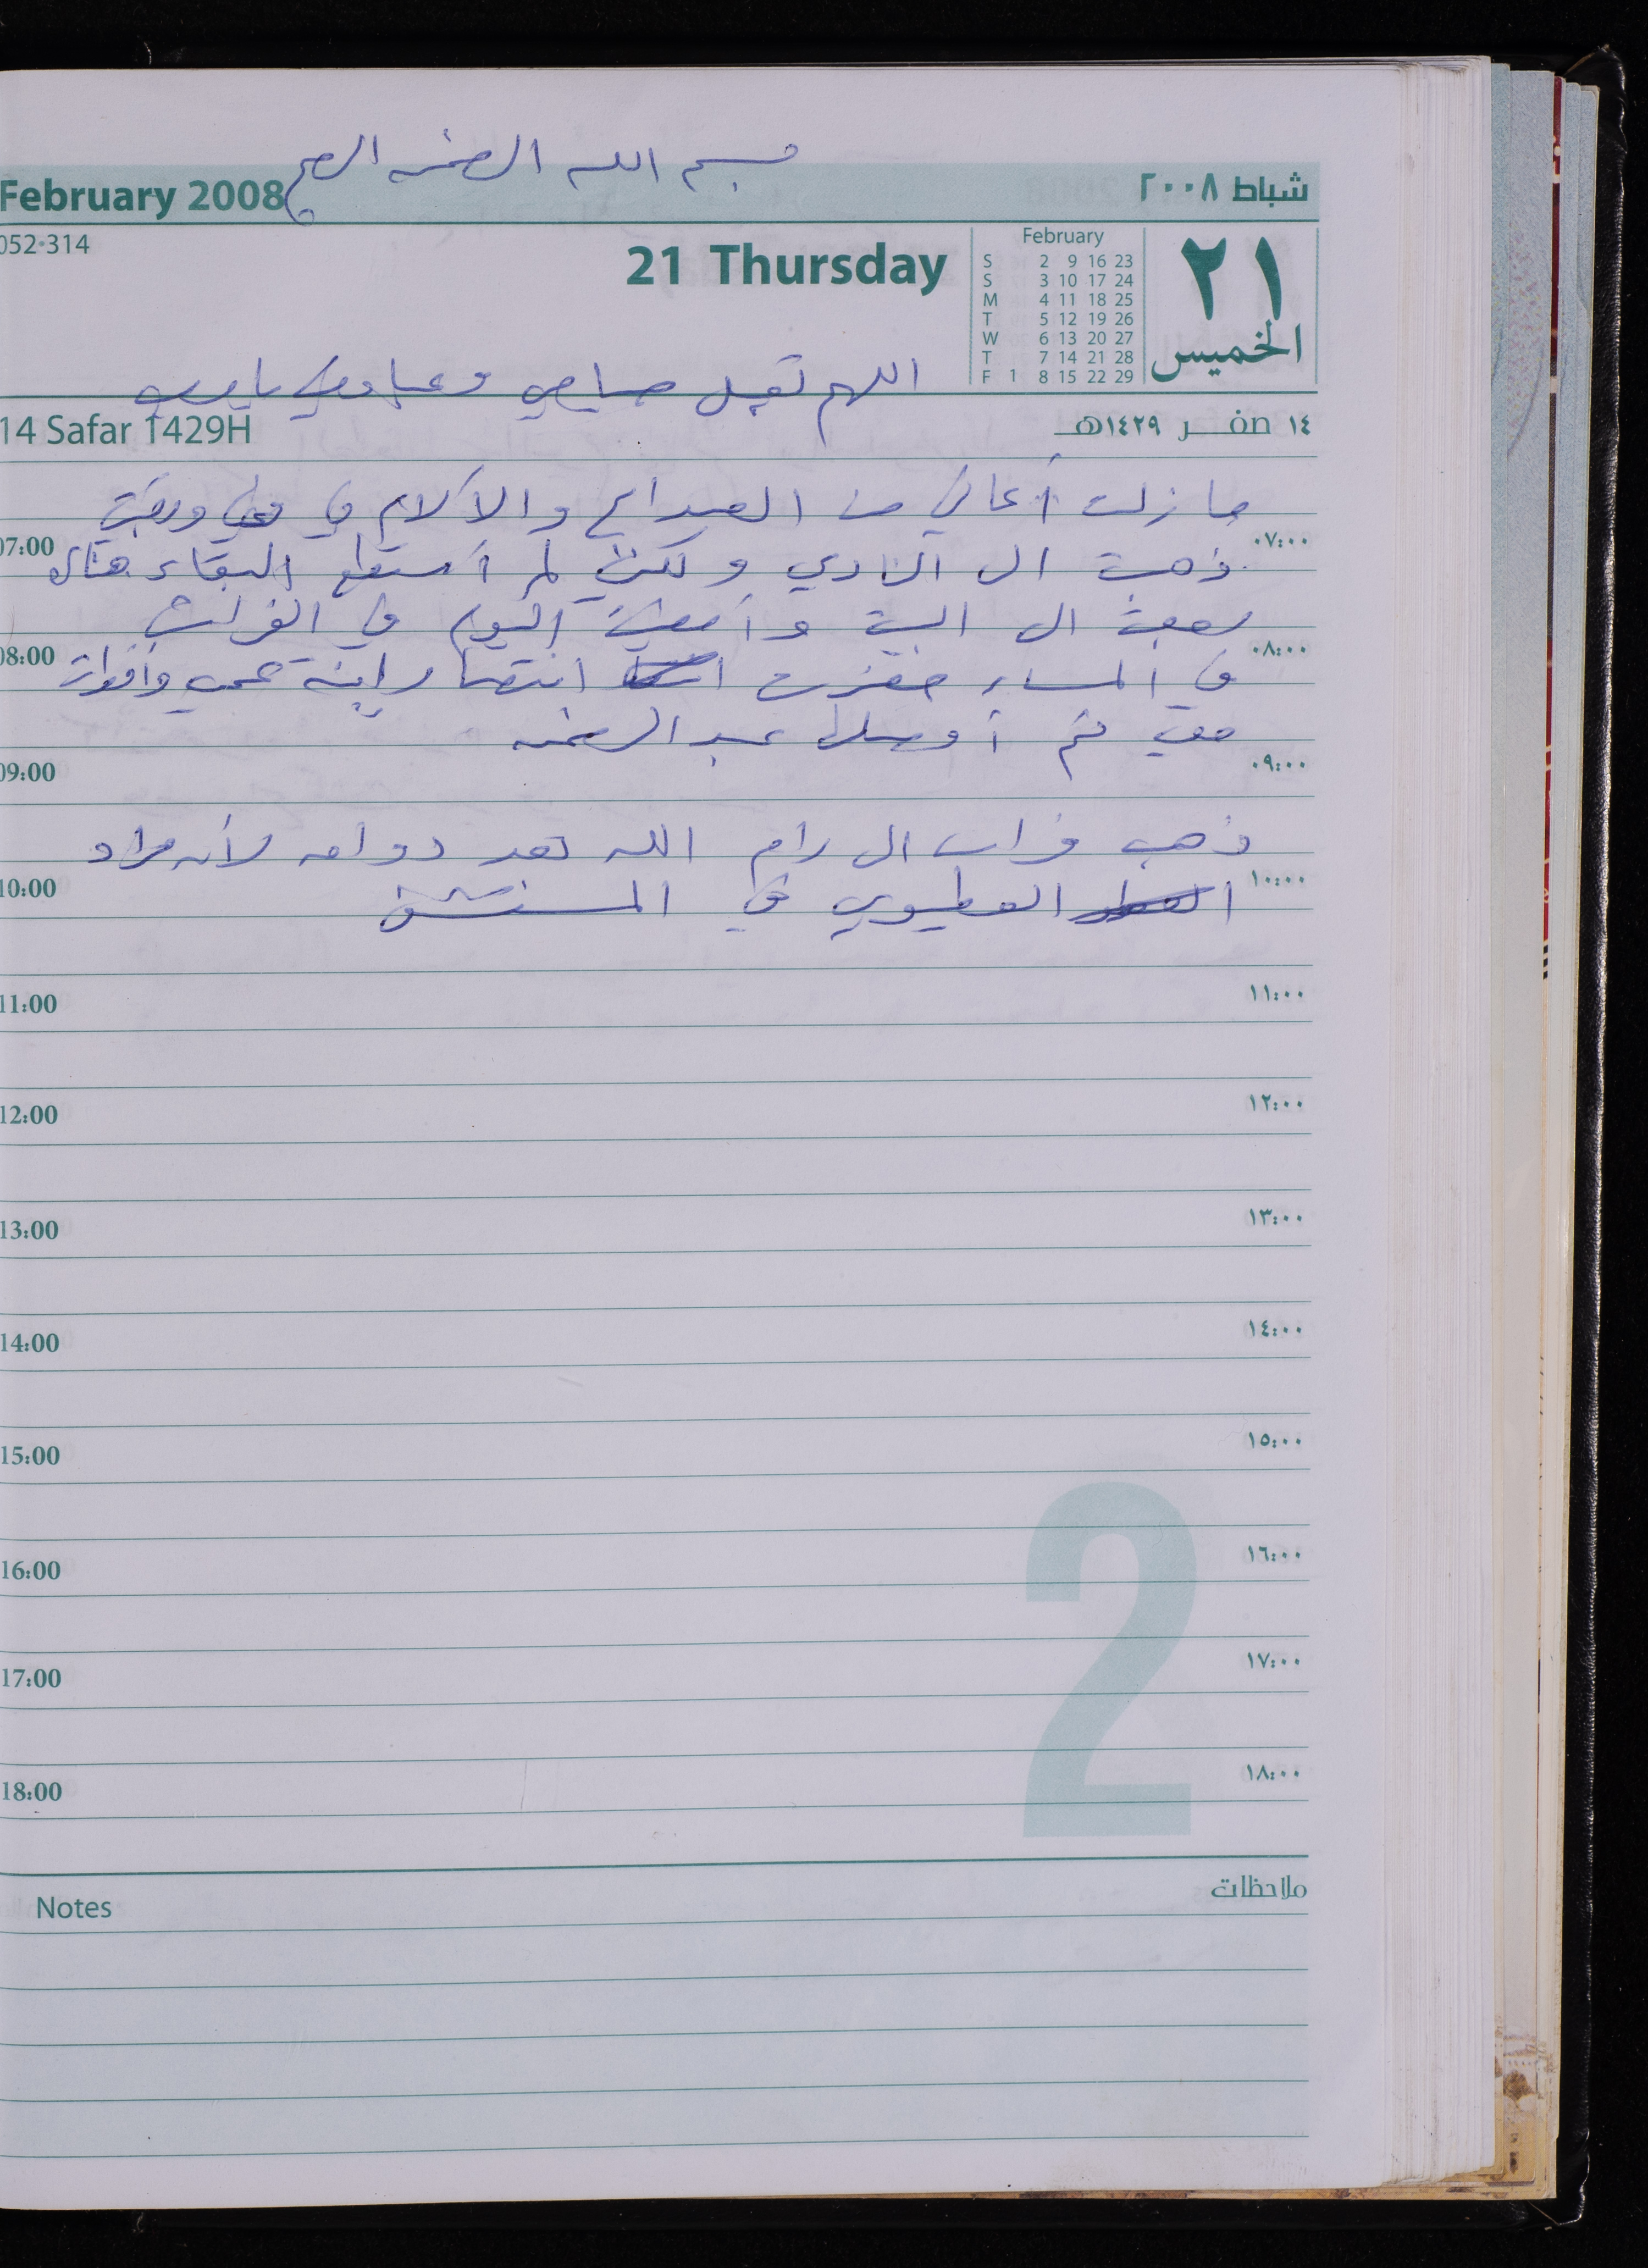 بسم الله الرحمن الرحيم
February 2008
شباط ٢٠٠٨
052-314
21 Thursday
February
S 2 9 16 23
S 3 10 17 24
M 4 11 18 25
T 5 12 19 26
W 6 13 20 27
T 7 14 21 28
F 1 8 15 22 29
٢١
الخميس
اللهم تقبل صيامي ودعاءي يا رب
14 Safar 1429H
١٤ صفر ١٤٢٩هـ
ما زلت أعاني من الصداع والآلام في ورقبتي
07:00 ٠٧:٠٠
ذهبت الى النادي ولكني لم أستطع البقاء هناك
رجعت الى البيت وأمضيت اليوم في الفراش
08:00 ٠٨:٠٠
في المساء حضرت انتصار ابنة عمي وأفطرت
معي ثم أوصلها عبد الرحمن
09:00 ٠٩:٠٠
ذهب فراس الى رام الله بعد دوامه لأن مراد
10:00 ١٠:٠٠
العطيوي في المستشفى
11:00 ١١:٠٠
12:00 ١٢:٠٠
13:00 ١٣:٠٠
14:00 ١٤:٠٠
15:00 ١٥:٠٠
16:00 ١٦:٠٠
17:00 ١٧:٠٠
18:00 ١٨:٠٠
2
Notes
ملاحظات